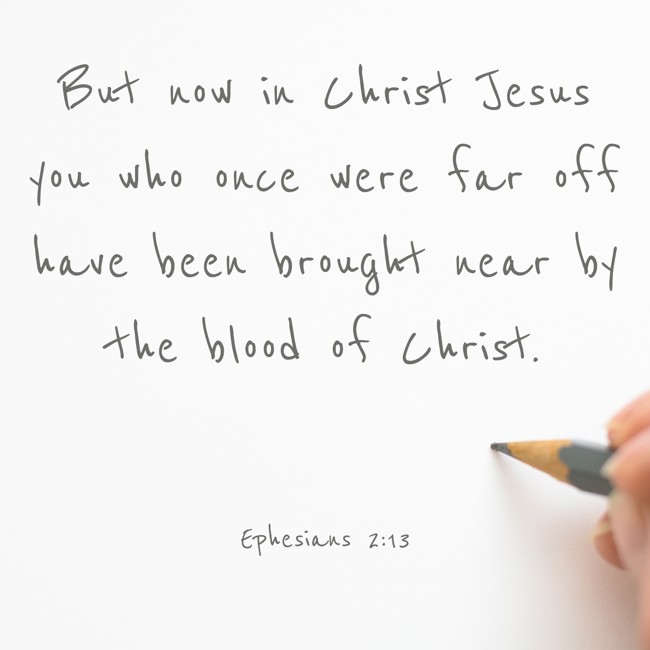 But now in Christ Jesus
you who once were far off
have been brought near by
the blood of Christ.
Ephesians 2:13